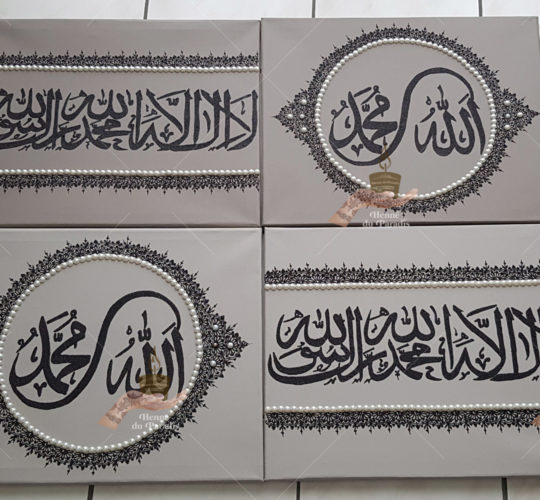 لا اله الا الله محمد رسول الله
الله محمد
Henné
du Paradis
الله محمد
Henné
du Paradis
لا اله الا الله محمد رسول الله